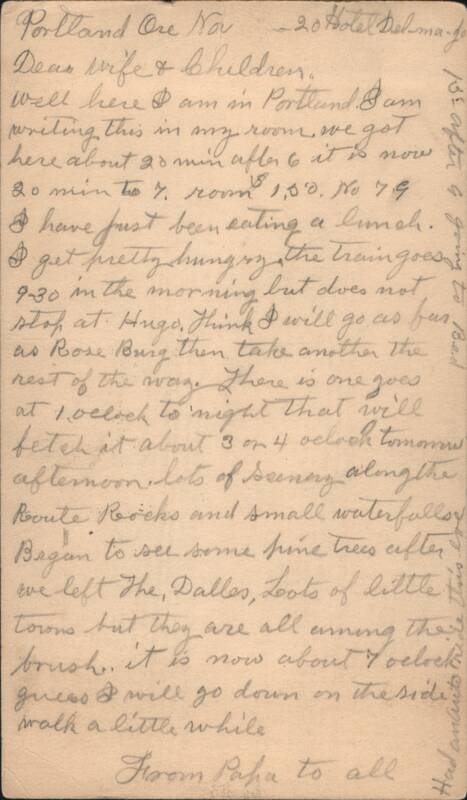 Portland Ore Nov - 20 Hotel Del-ma-go
Dear Wife & Children.
Well here I am in Portland. I am
writing this in my room. we got
here about 20 min after 6 it is now
20 min to 7. room's 1,50. No 79
I have just been eating a lunch.
I get pretty hungry. the train goes
9-30 in the morning but does not
stop at Hugo. Think I will go as far
as Rose Burg then take another the
rest of the way. There is one goes
at 1 oclock to night that will
fetch it about 3 or 4 oclock tomorrow
afternoon. lots of scenery along the
Route Rocks and small waterfalls
Began to see some pine trees after
we left The, Dalles, Lots of little
towns but they are all among the
brush. it is now about 7 oclock
guess I will go down on the side
walk a little while
From Papa to all
Had an auto ride this
after 9 going to Bed